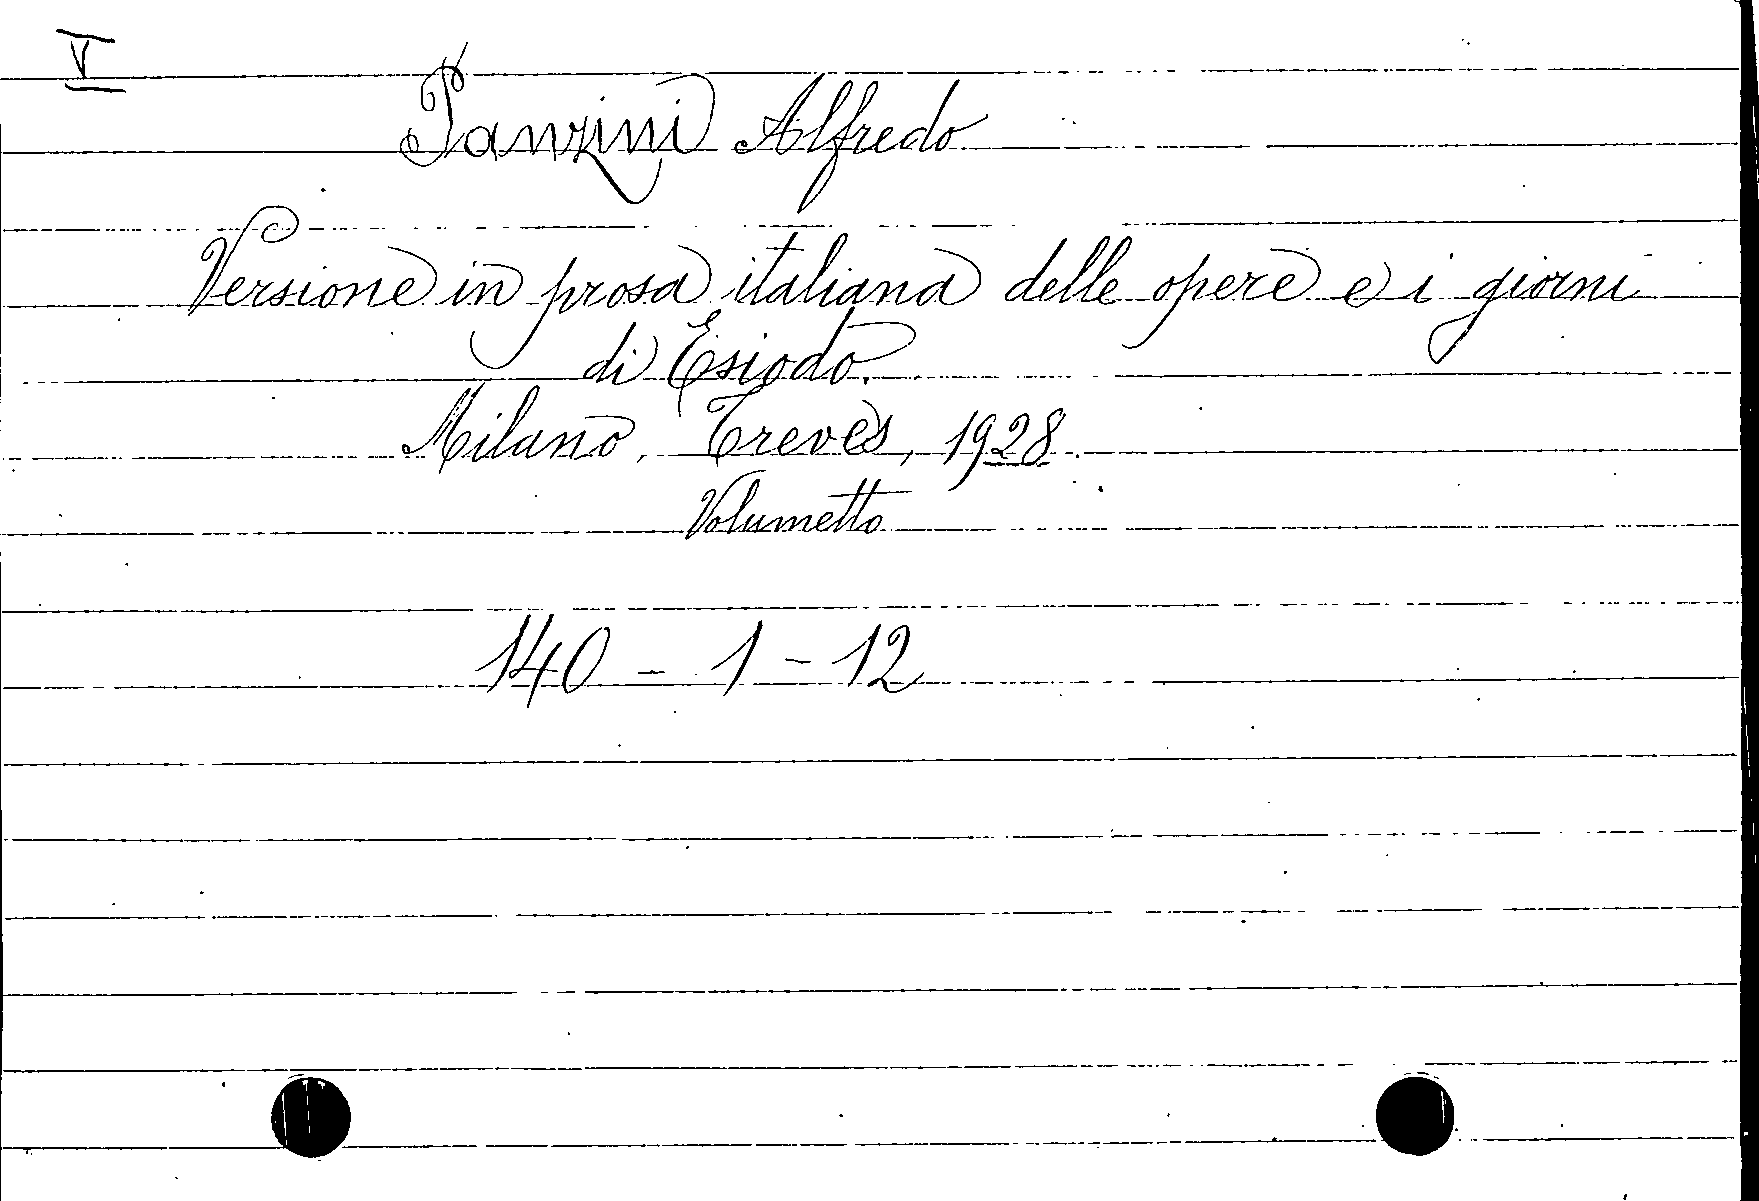 V
Panzini Alfredo
Versione in prosa italiana delle opere e i giorni
di Esiodo.
Milano, Treves, 1928.
Volumetto
140 - 1 - 12